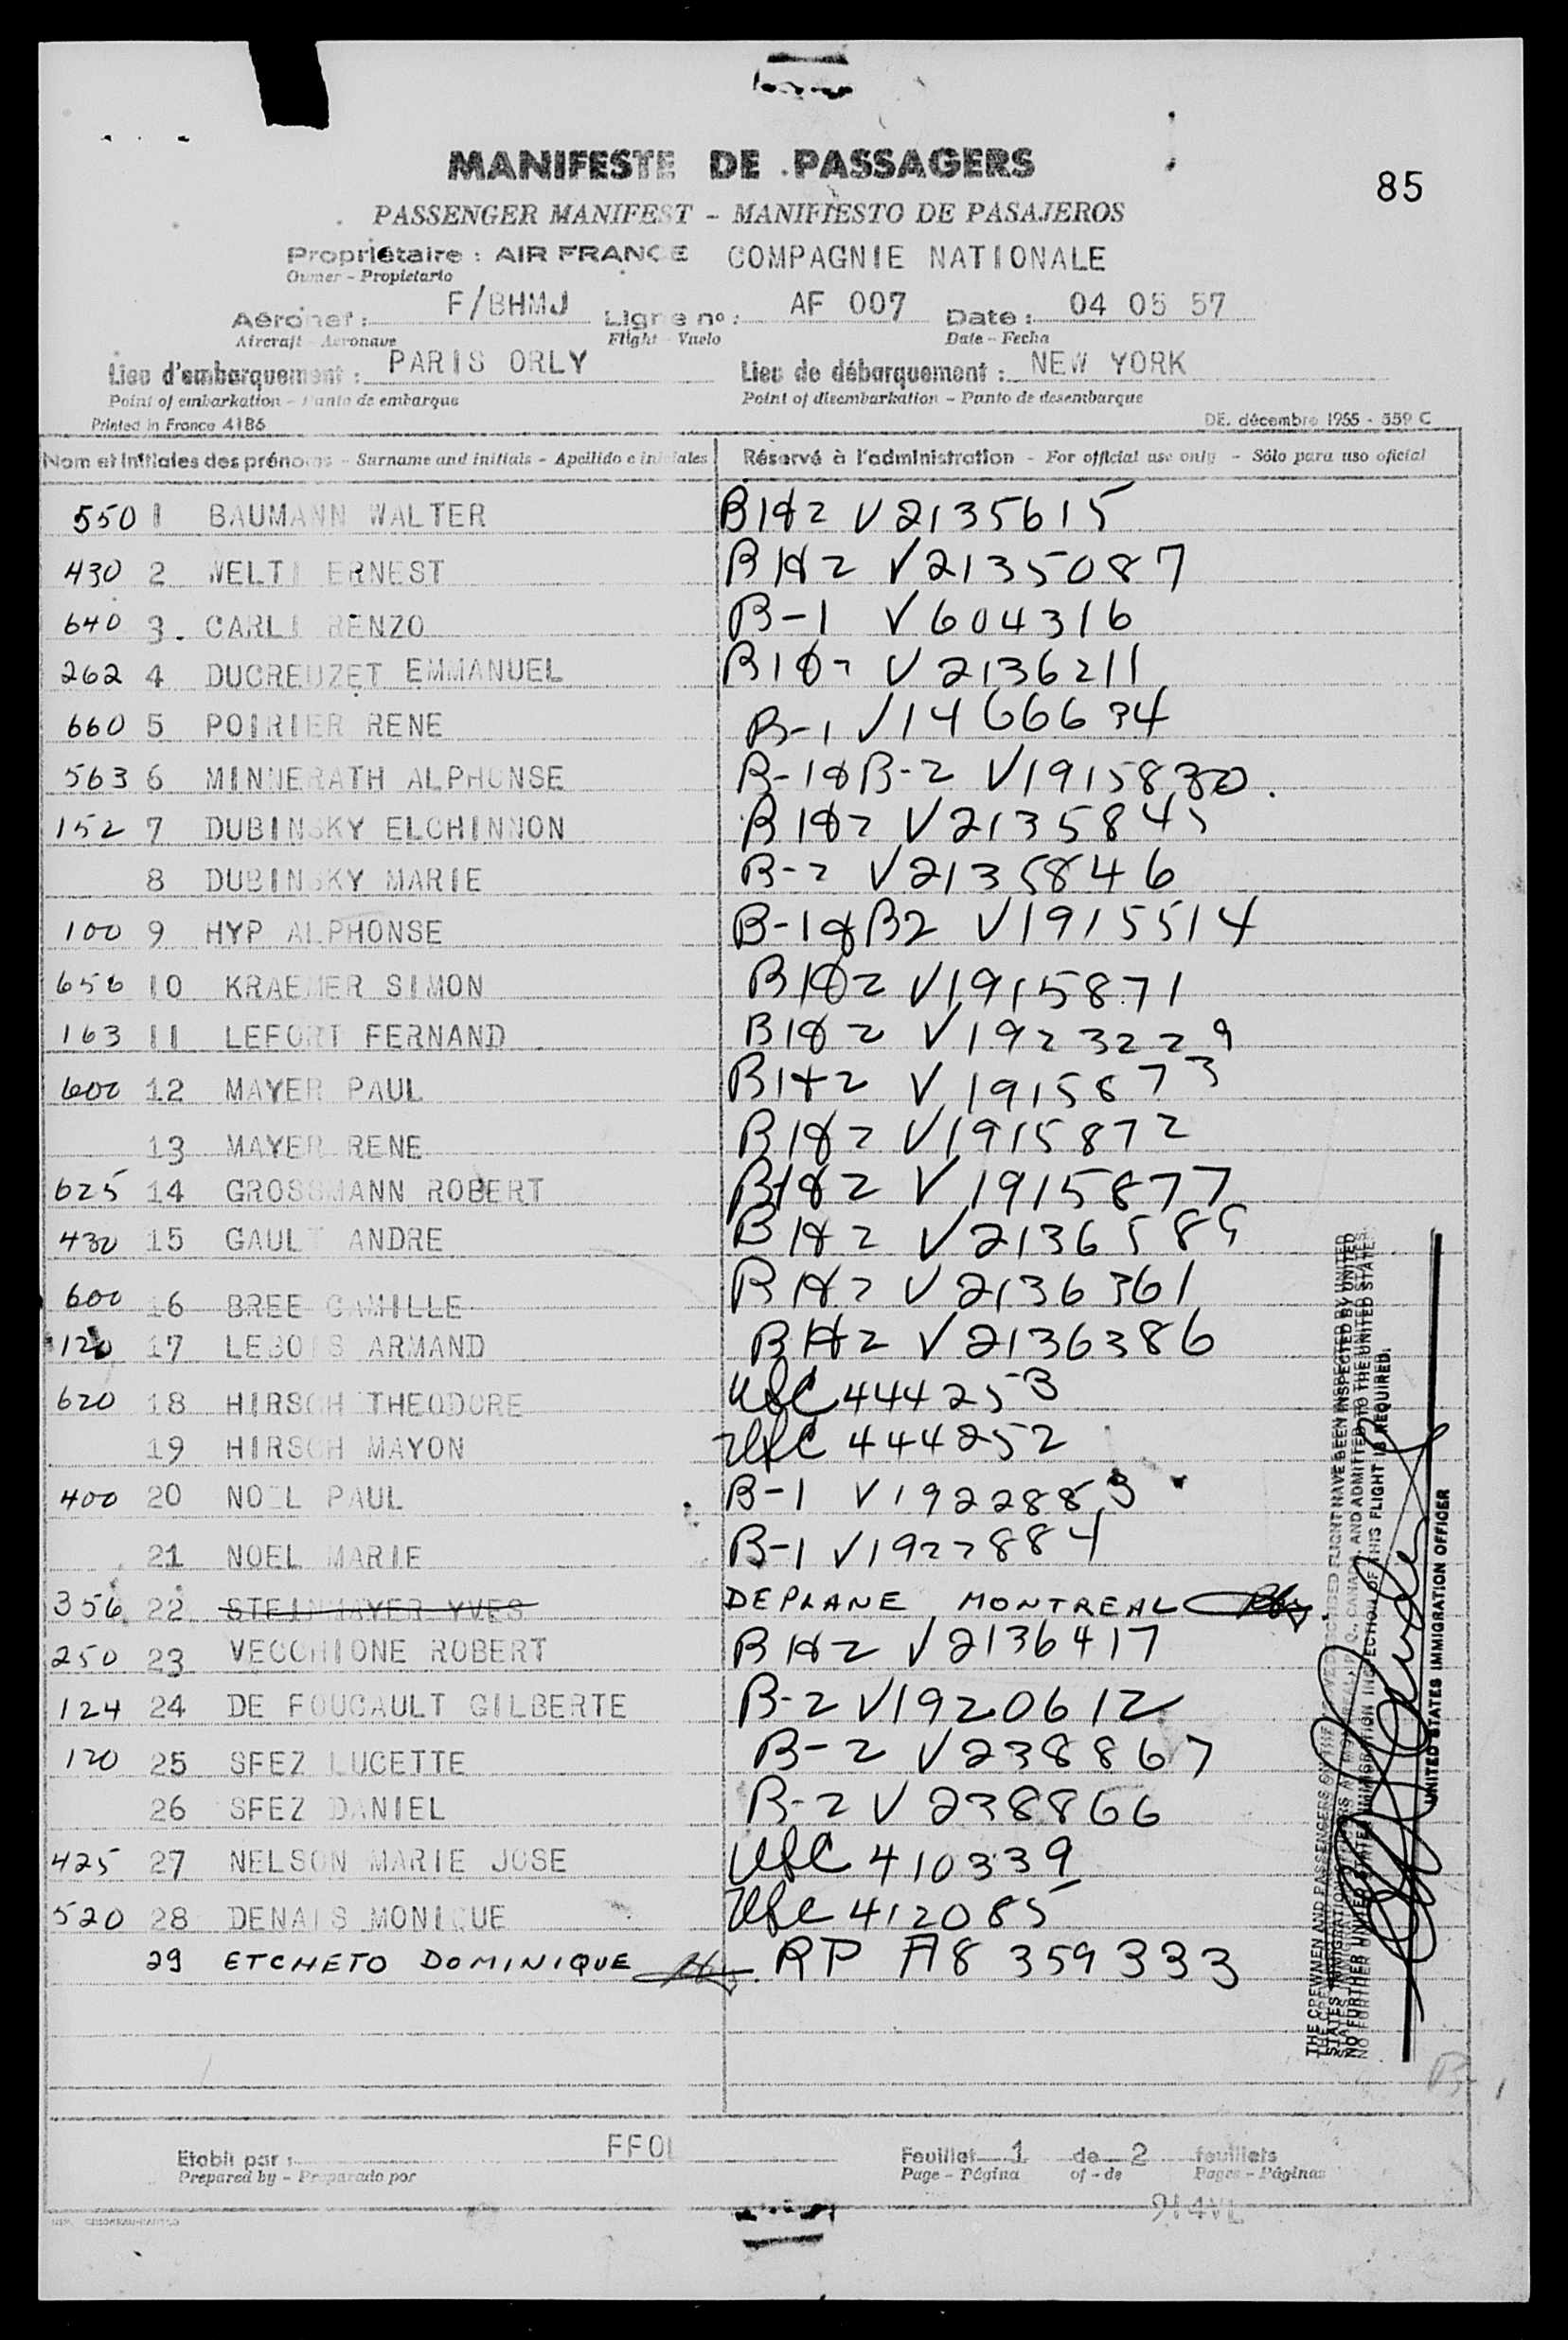 MANIFESTE DE PASSAGERS
85
PASSENGER MANIFEST - MANIFIESTO DE PASAJEROS
Propriétaire : AIR FRANCE COMPAGNIE NATIONALE
Owner - Propietario
Aéronef : F/BHMJ Ligne nº : AF 007 Date : 04 05 57
Aircraft - Aeronave Flight - Vuelo Date - Fecha
Lieu d'embarquement : PARIS ORLY Lieu de débarquement : NEW YORK
Point of embarkation - Punto de embarque Point of disembarkation - Punto de desembarque
Printed in France 4186 DE. décembre 1955 - 559 C
Nom et initiales des prénoms - Surname and initials - Apellido e iniciales Réservé à l'administration - For official use only - Sólo para uso oficial
550 1 BAUMANN WALTER B1&2 V2135615
430 2 WELTI ERNEST B1&2 V2135087
640 3. CARLI RENZO B-1 V604316
262 4 DUCREUZET EMMANUEL B1&2 V2136211
660 5 POIRIER RENE B-1 V1466634
563 6 MINNERATH ALPHONSE B-1&B-2
152 7 DUBINSKY ELCHINNON B1&2 V2135845
8 DUBINSKY MARIE B-2 V2135846
100 9 HYP ALPHONSE B-1&B2 V1915514
656 10 KRAEMER SIMON B1&2 V1915871
163 11 LEFORT FERNAND B1&2 V1923229
600 12 MAYER PAUL B1&2 V1915873
13 MAYER RENE B1&2 V1915872
625 14 GROSSMANN ROBERT B1&2 V1915877
430 15 GAULT ANDRE B1&2
600 16 BREE CAMILLE B1&2 V2136361
120 17 LEBOIS ARMAND B1&2 V2136386
620 18 HIRSCH THEODORE USC 444253
19 HIRSCH MAYON USC 444252
400 20 NOEL PAUL B-1 V1922883
21 NOEL MARIE B-1 V1922884
356 22 STEINMAYER YVES DEPLANE MONTREAL
250 23 VECCHIONE ROBERT B1&2 V2136417
124 24 DE FOUCAULT GILBERTE B-2 V1920612
120 25 SFEZ LUCETTE B-2 V238867
26 SFEZ DANIEL B-2 V238866
425 27 NELSON MARIE JOSE USC 410339
520 28 DENAIS MONIQUE USC 412085
29 ETCHETO DOMINIQUE RP A8 359333
THE CREWMEN AND PASSENGERS ON THE ABOVE DESCRIBED FLIGHT HAVE BEEN INSPECTED BY UNITED
STATES IMMIGRATION OFFICERS AT MONTREAL, P.Q., CANADA, AND ADMITTED TO THE UNITED STATES.
NO FURTHER UNITED STATES IMMIGRATION INSPECTION OF THIS FLIGHT IS REQUIRED.
UNITED STATES IMMIGRATION OFFICER
Etabli par : FFOL Feuillet 1 de 2 feuillets
Prepared by - Preparado por Page - Página of - de Pages - Páginas